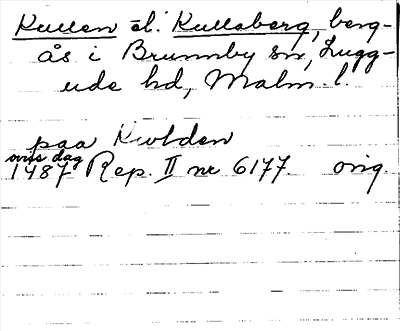 Kullen el. Kullaberg, berg-
ås i Brunnby sn, Lugg-
ude hd, Malm. l.
paa Kwlden
ons dag
1487 Rep. II nr 6177. orig.